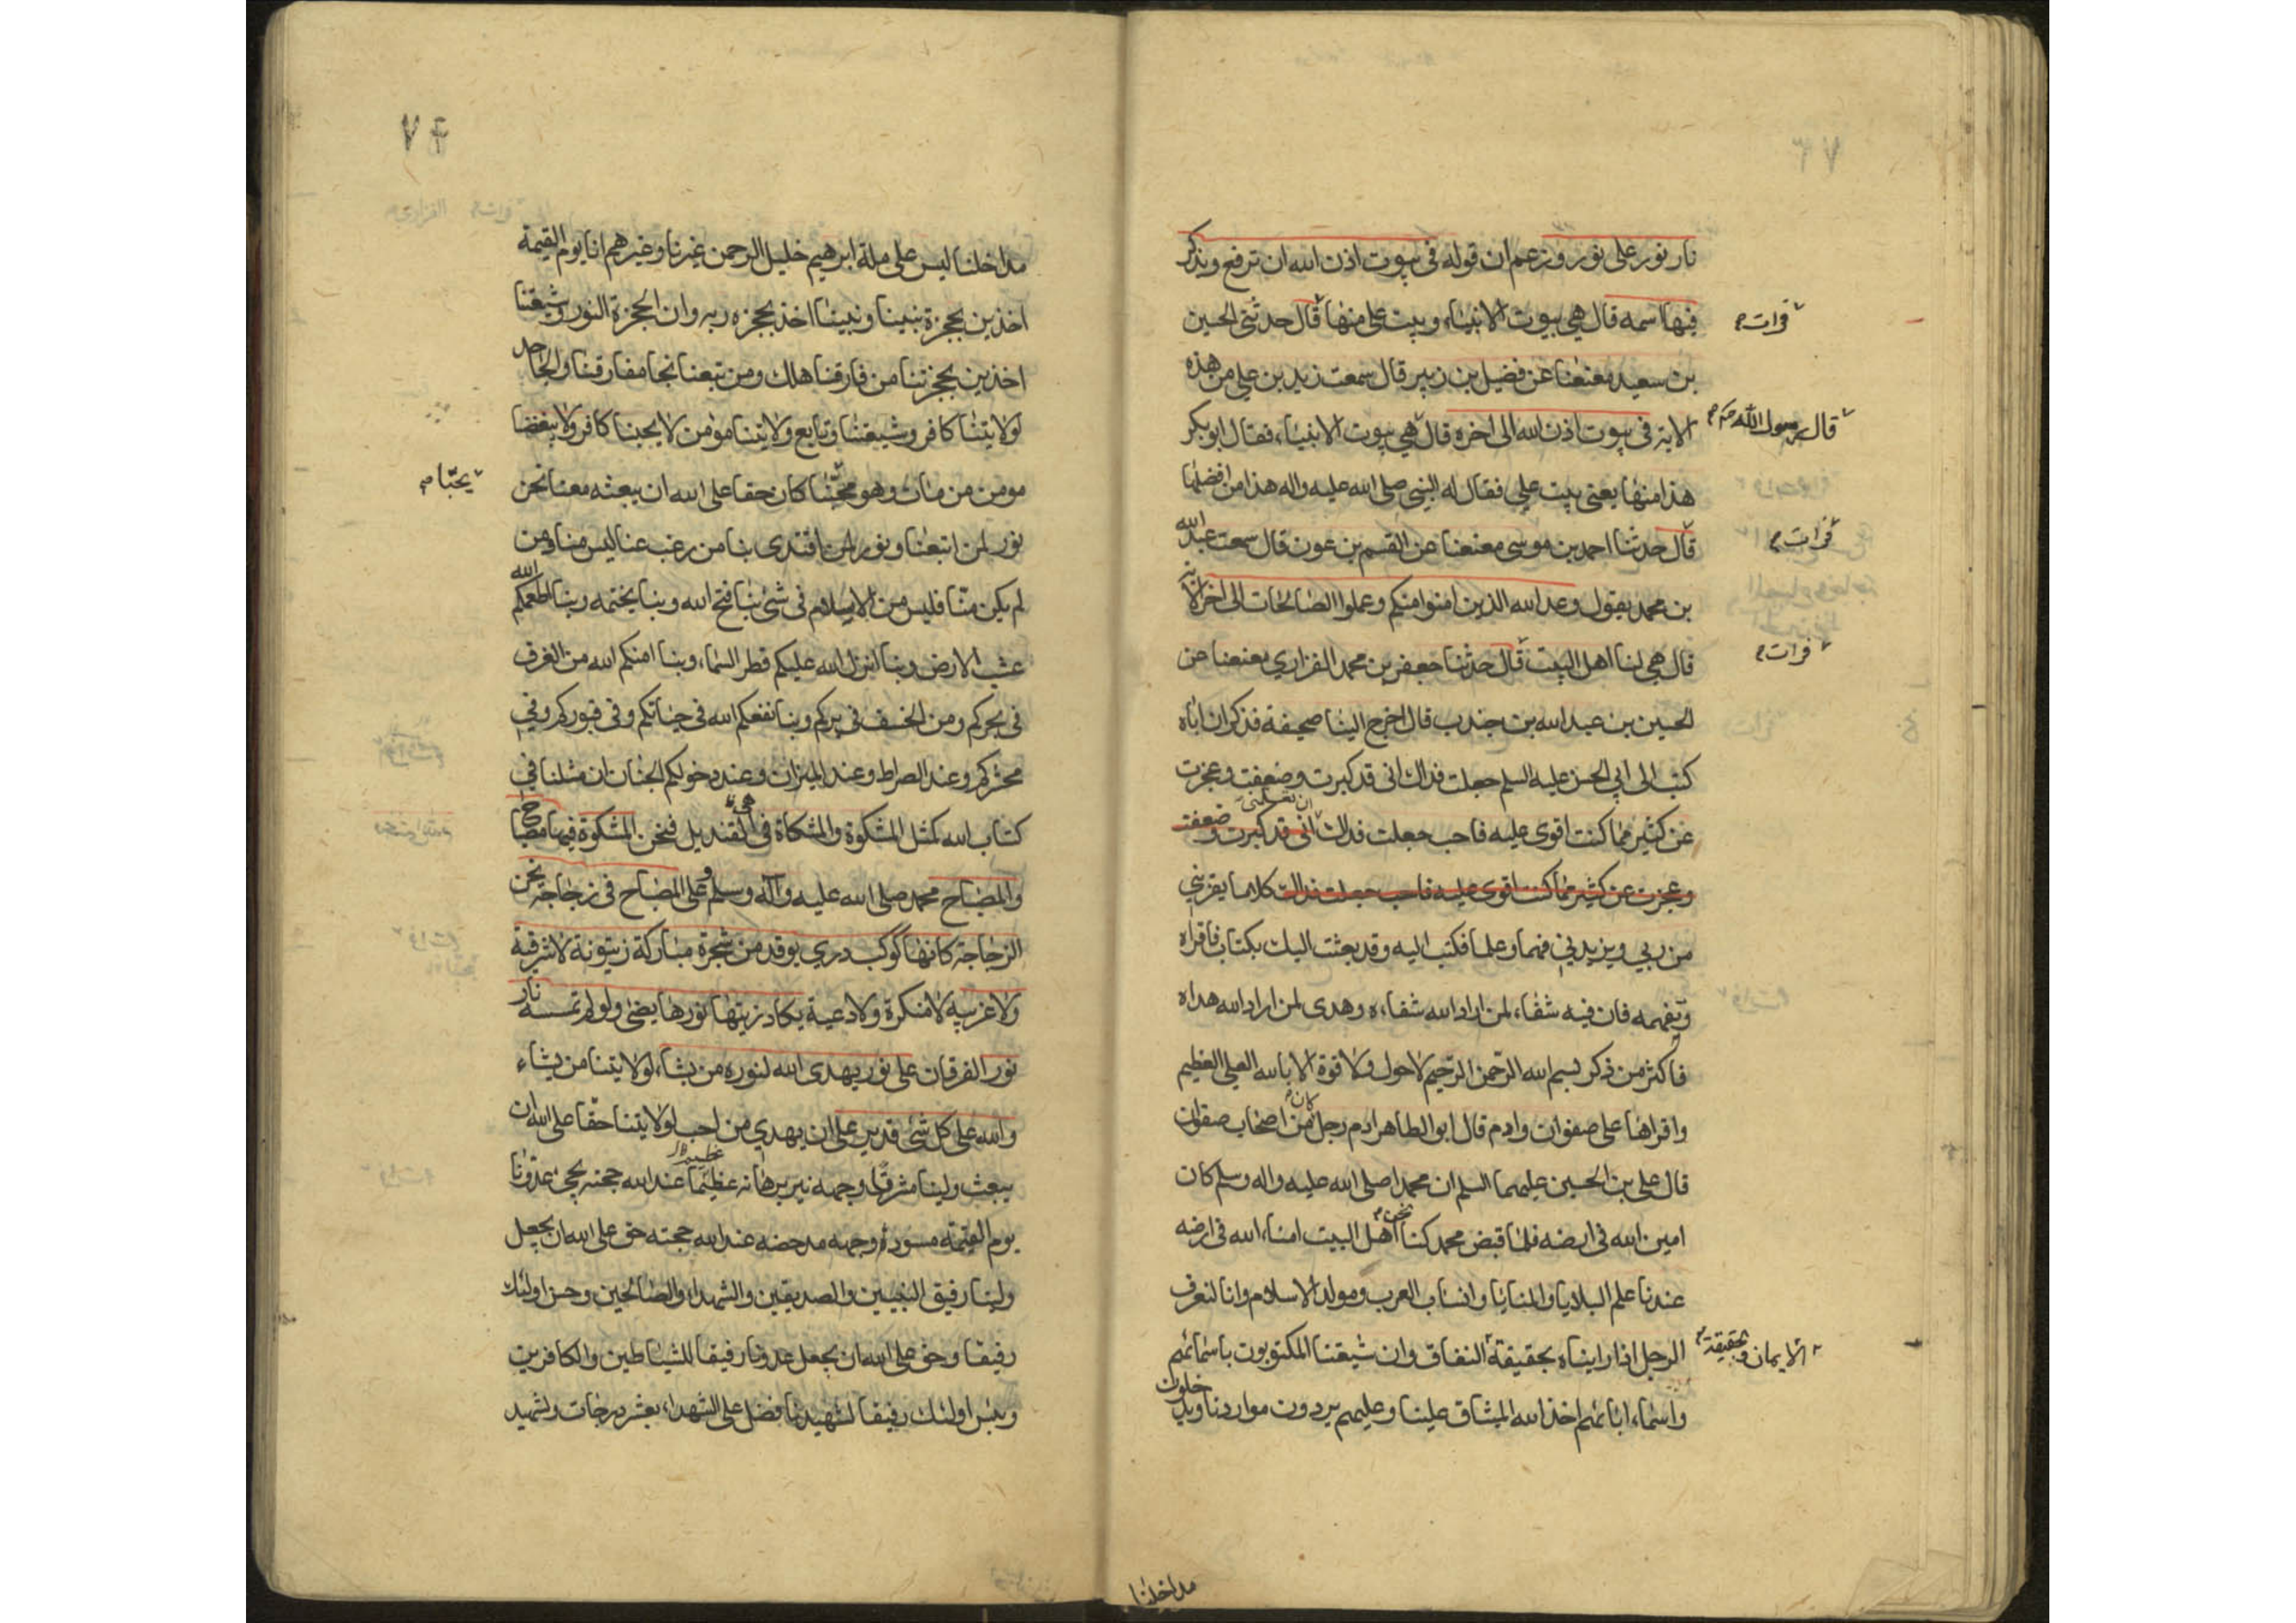 نار نور على نور وزعم ان قوله فى بيوت اذن الله ان ترفع ويذكر
فيها اسمه قال هي بيوت الانبياء وبيت على منها قال حدثني الحسين
فرات م
بن سعيد معنعنا عن فضيل بن زبير قال سمعت زيد بن علي من هذه
الاية فى بيوت اذن الله الى اخره قال هي بيوت الانبياء فقال ابو بكر
قال رسول الله
هذا منها يعنى بيت علي فقال له النبى صلى الله عليه واله هذا من افضلها
قال حدثنا احمد بن موسى معنعنا عن القسم بن عون قال سمعت عبد الله
فرات م
بن محمد يقول وعد الله الذين امنوا منكم وعملوا الصالحات الى اخر الاية
قال هي لنا اهل البيت قال حدثنا جعفر بن محمد الفزاري معنعنا عن
فرات م
الحسين بن عبد الله بن جندب قال اخرج الينا صحيفة فذكر ان اباه
كتب الى ابي الحسن عليه السلم جعلت فداك انى قد كبرت وضعفت وعجزت
عن كثير مما كنت اقوى عليه فاحب جعلت فداك انى قد كبرت وضعفت
ان تعلمنى
وعجزت عن كثير مما كنت اقوى عليه فاحب جعلت فداك كلاما يقربني
من ربي ويزيدني فهما وعلما فكتب اليه وقد بعثت اليك بكتاب فاقراه
وتفهمه فان فيه شفاء لمن اراد الله شفاءه وهدى لمن اراد الله هداه
فاكثر من ذكر بسم الله الرحمن الرحيم لا حول ولا قوة الا بالله العلي العظيم
واقراها على صفوان وادم قال ابو الطاهر ادم رجل كان من اصحاب صفوان
قال على بن الحسين عليهما السلم ان محمدا صلى الله عليه واله وسلم كان
امين الله فى ارضه فلما قبض محمد كنا نحن اهل البيت امناء الله فى ارضه
عندنا علم البلايا والمنايا وانساب العرب ومولد الاسلام وانا لنعرف
الرجل اذا رايناه بحقيقة النفاق وان شيعتنا المكتوبون باسمائهم
الايمان وبحقيقة
واسماء ابائهم اخذ الله الميثاق علينا وعليهم يردون مواردنا ويدخلون
مداخلنا
٧٤
مداخلنا ليس على ملة ابرهيم خليل الرحمن غيرنا وغيرهم انا يوم القيمة
اخذين بحجزة نبينا ونبينا اخذ بحجزه ربه وان الحجزة النور وشيعتنا
اخذين بحجزتنا من فارقنا هلك ومن تبعنا نجا مفارقنا والجاحد
لولايتنا كافر وشيعتنا وتابع ولايتنا مومن لا يحبنا كافر ولا يبغضنا
مومن من مات وهو محبنا كان حقا على الله ان يبعثه معنا نحن
يحبنا
نور لمن اتبعنا ونور لمن اقتدى بنا من رغب عنا ليس منا ومن
لم يكن منا فليس من الاسلام فى شئ بنا فتح الله وبنا يختمه وبنا اطعمكم الله
عشب الارض وبنا انزل الله عليكم قطر السماء وبنا امنكم الله من الغرف
فى بحركم ومن الخسف فى بركم وبنا نفعكم الله فى حياتكم وفى قبوركم وفي
محشركم وعند الصراط وعند الميزان وعند دخولكم الجنان ان مثلنا في
كتاب الله كمثل المشكوة والمشكاة فى القنديل فنحن المشكوة فيها مصباح
هى
والمصباح محمد صلى الله عليه وآله وسلم وعلى المصباح فى زجاجة نحن
الزجاجة كانها كوكب دري يوقد من شجرة مباركة زيتونة لا شرقية
ولا غربيه لا منكرة ولا دعية يكاد زيتها نورها يضئ ولو لم تمسسه نار
نور الفرقان على نور يهدى الله لنوره من يشاء لولايتنا من يشاء
والله على كل شئ قدير على ان يهدي من احب لولايتنا حقا على الله ان
يبعث ولينا مشرقا وجهه نير برهانه عظيما عند الله حجته يجئ عدونا
يوم القيمة مسوده وجهه مدحضه عند الله حجته حق على الله ان يجعل
ولينا رفيق النبيين والصديقين والشهداء والصالحين وحسن اولئك
رفيقا وحق على الله ان يجعل عدونا رفيقا للشياطين والكافرين
وبئس اولئك رفيقا لشهيدنا فضل على الشهداء بعشر درجات ولشهيد